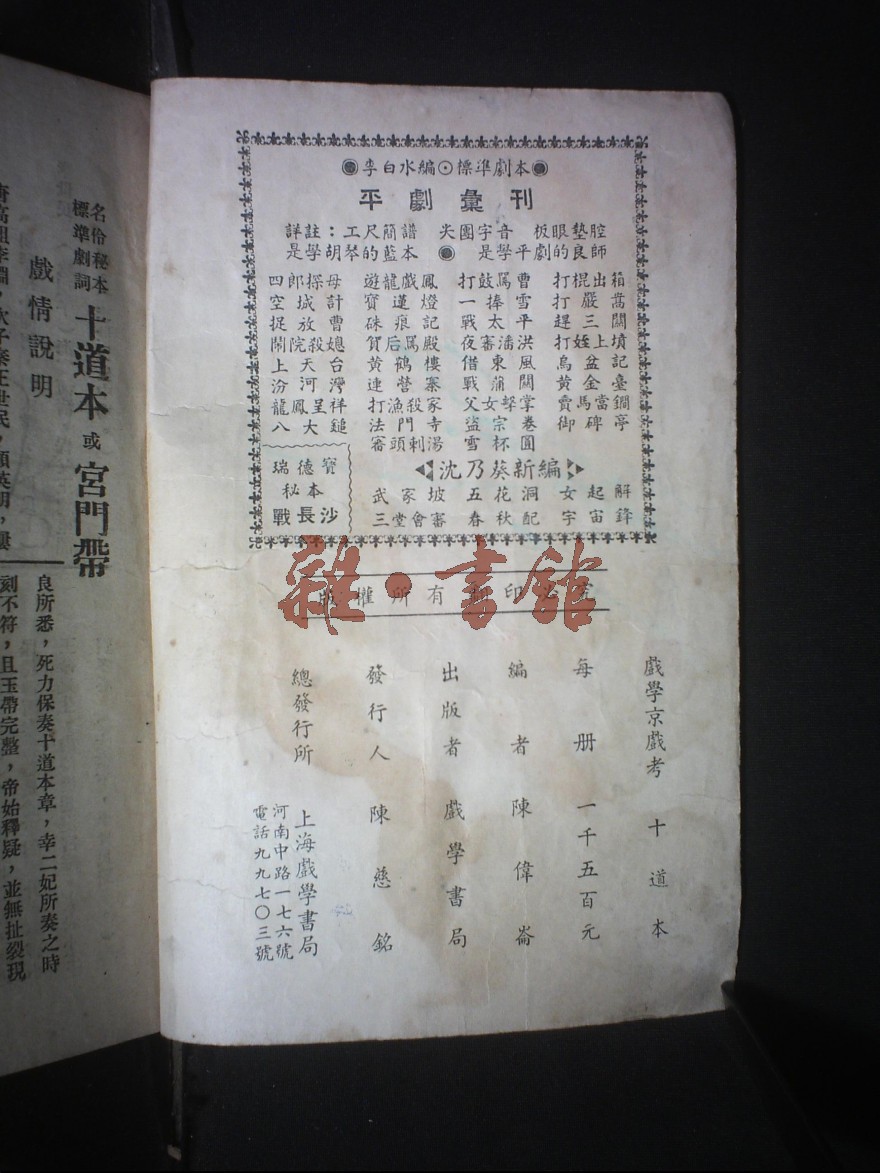 李白水編⊙標準劇本
平劇彙刊
詳註：工尺簡譜 尖團字音 板眼墊腔
是學胡琴的藍本 是學平劇的良師
四郎探母 遊龍戲鳳 打鼓罵曹 打棍出箱
空城計 寶蓮燈 一捧雪 打嚴嵩
捉放曹 硃痕記 戰太平 趕三關
鬧院殺媳 賀后罵殿 夜審潘洪 打姪上墳
上天台 黃鶴樓 借東風 烏盆記
汾河灣 連營寨 戰蒲關 黃金臺
龍鳳呈祥 打漁殺家 父女擊掌 賣馬當鐧
八大鎚 法門寺 盜宗卷 御碑亭
審頭刺湯 雪杯圓
瑞德寶
秘本
戰長沙
沈乃葵新編
武家坡 五花洞 女起解
三堂會審 春秋配 宇宙鋒
雜·書館
版權所有 翻印必究
戲學京戲考 十道本
每册 一千五百元
編者 陳偉崙
出版者 戲學書局
發行人 陳慈銘
總發行所 上海戲學書局
河南中路一七六號
電話九九七〇三號
名伶秘本
標準劇詞
十道本 或 宮門帶
戲情說明
良所悉，死力保奏十道本章，幸二妃所奏之時
刻不符，且玉帶完整，帝始釋疑，並無扯裂現